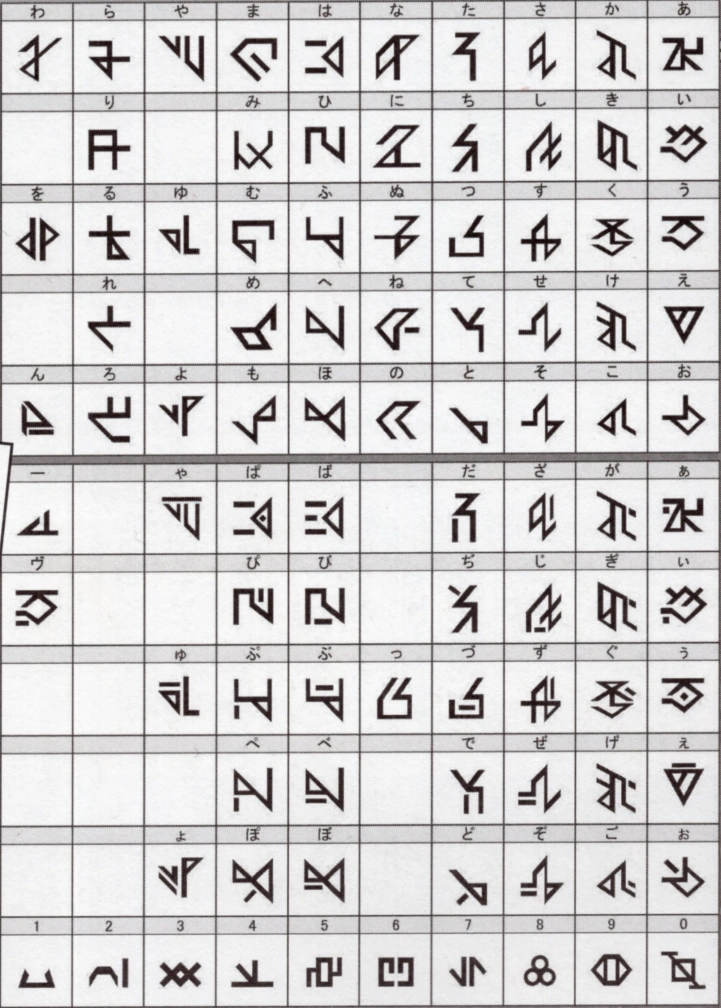 わ ら や ま は な た さ か あ
り み ひ に ち し き い
を る ゆ む ふ ぬ つ す く う
れ め へ ね て せ け え
ん ろ よ も ほ の と そ こ お
ー ゃ ぱ ば だ ざ が ぁ
ヴ ぴ び ぢ じ ぎ ぃ
ゅ ぷ ぶ っ づ ず ぐ ぅ
ぺ べ で ぜ げ ぇ
ょ ぽ ぼ ど ぞ ご ぉ
1 2 3 4 5 6 7 8 9 0